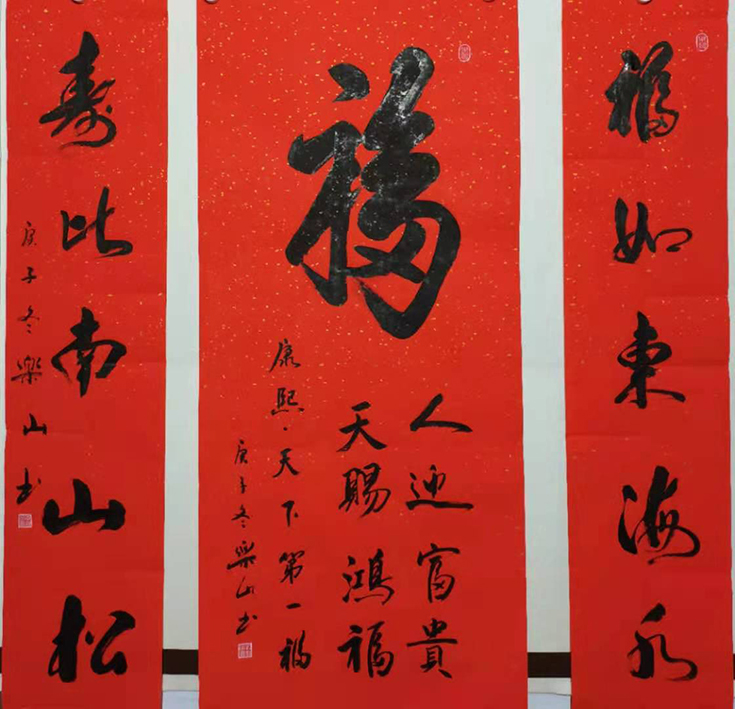 福如東海水
福
人迎富貴
天賜鴻福
康熙·天下第一福
庚子冬樂山书
寿比南山松
庚子冬樂山书